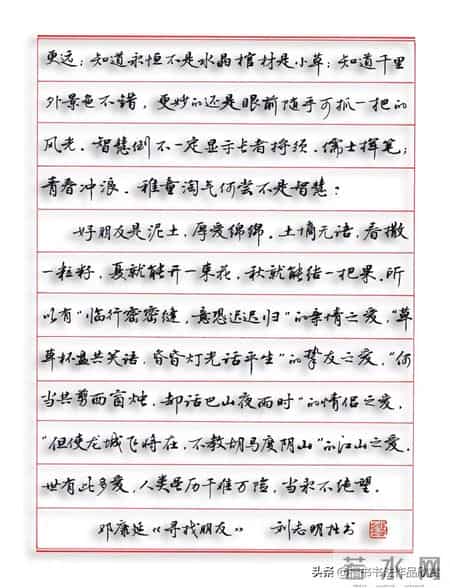 更远；知道永恒不是水晶棺材是小草；知道千里
外景色不错，更妙的还是眼前随手可抓一把的
风光。智慧倒不一定显示长者捋须，儒士挥笔；
青春冲浪，稚童淘气何尝不是智慧？
好朋友是泥土，厚爱绵绵。土壤无语，春撒
一粒籽，夏就能开一束花，秋就能结一把果。所
以有“临行密密缝，意恐迟迟归”的亲情之爱，“草
草杯盘共笑语，昏昏灯光话平生”的挚友之爱，“何
当共剪西窗烛，却话巴山夜雨时”的情侣之爱，
“但使龙城飞将在，不教胡马度阴山”的江山之爱。
世有此多爱，人类虽历千难万险，当永不绝望。
邓康延《寻找朋友》 刘志明硬书
头条@楷书书法作品欣赏
若水网